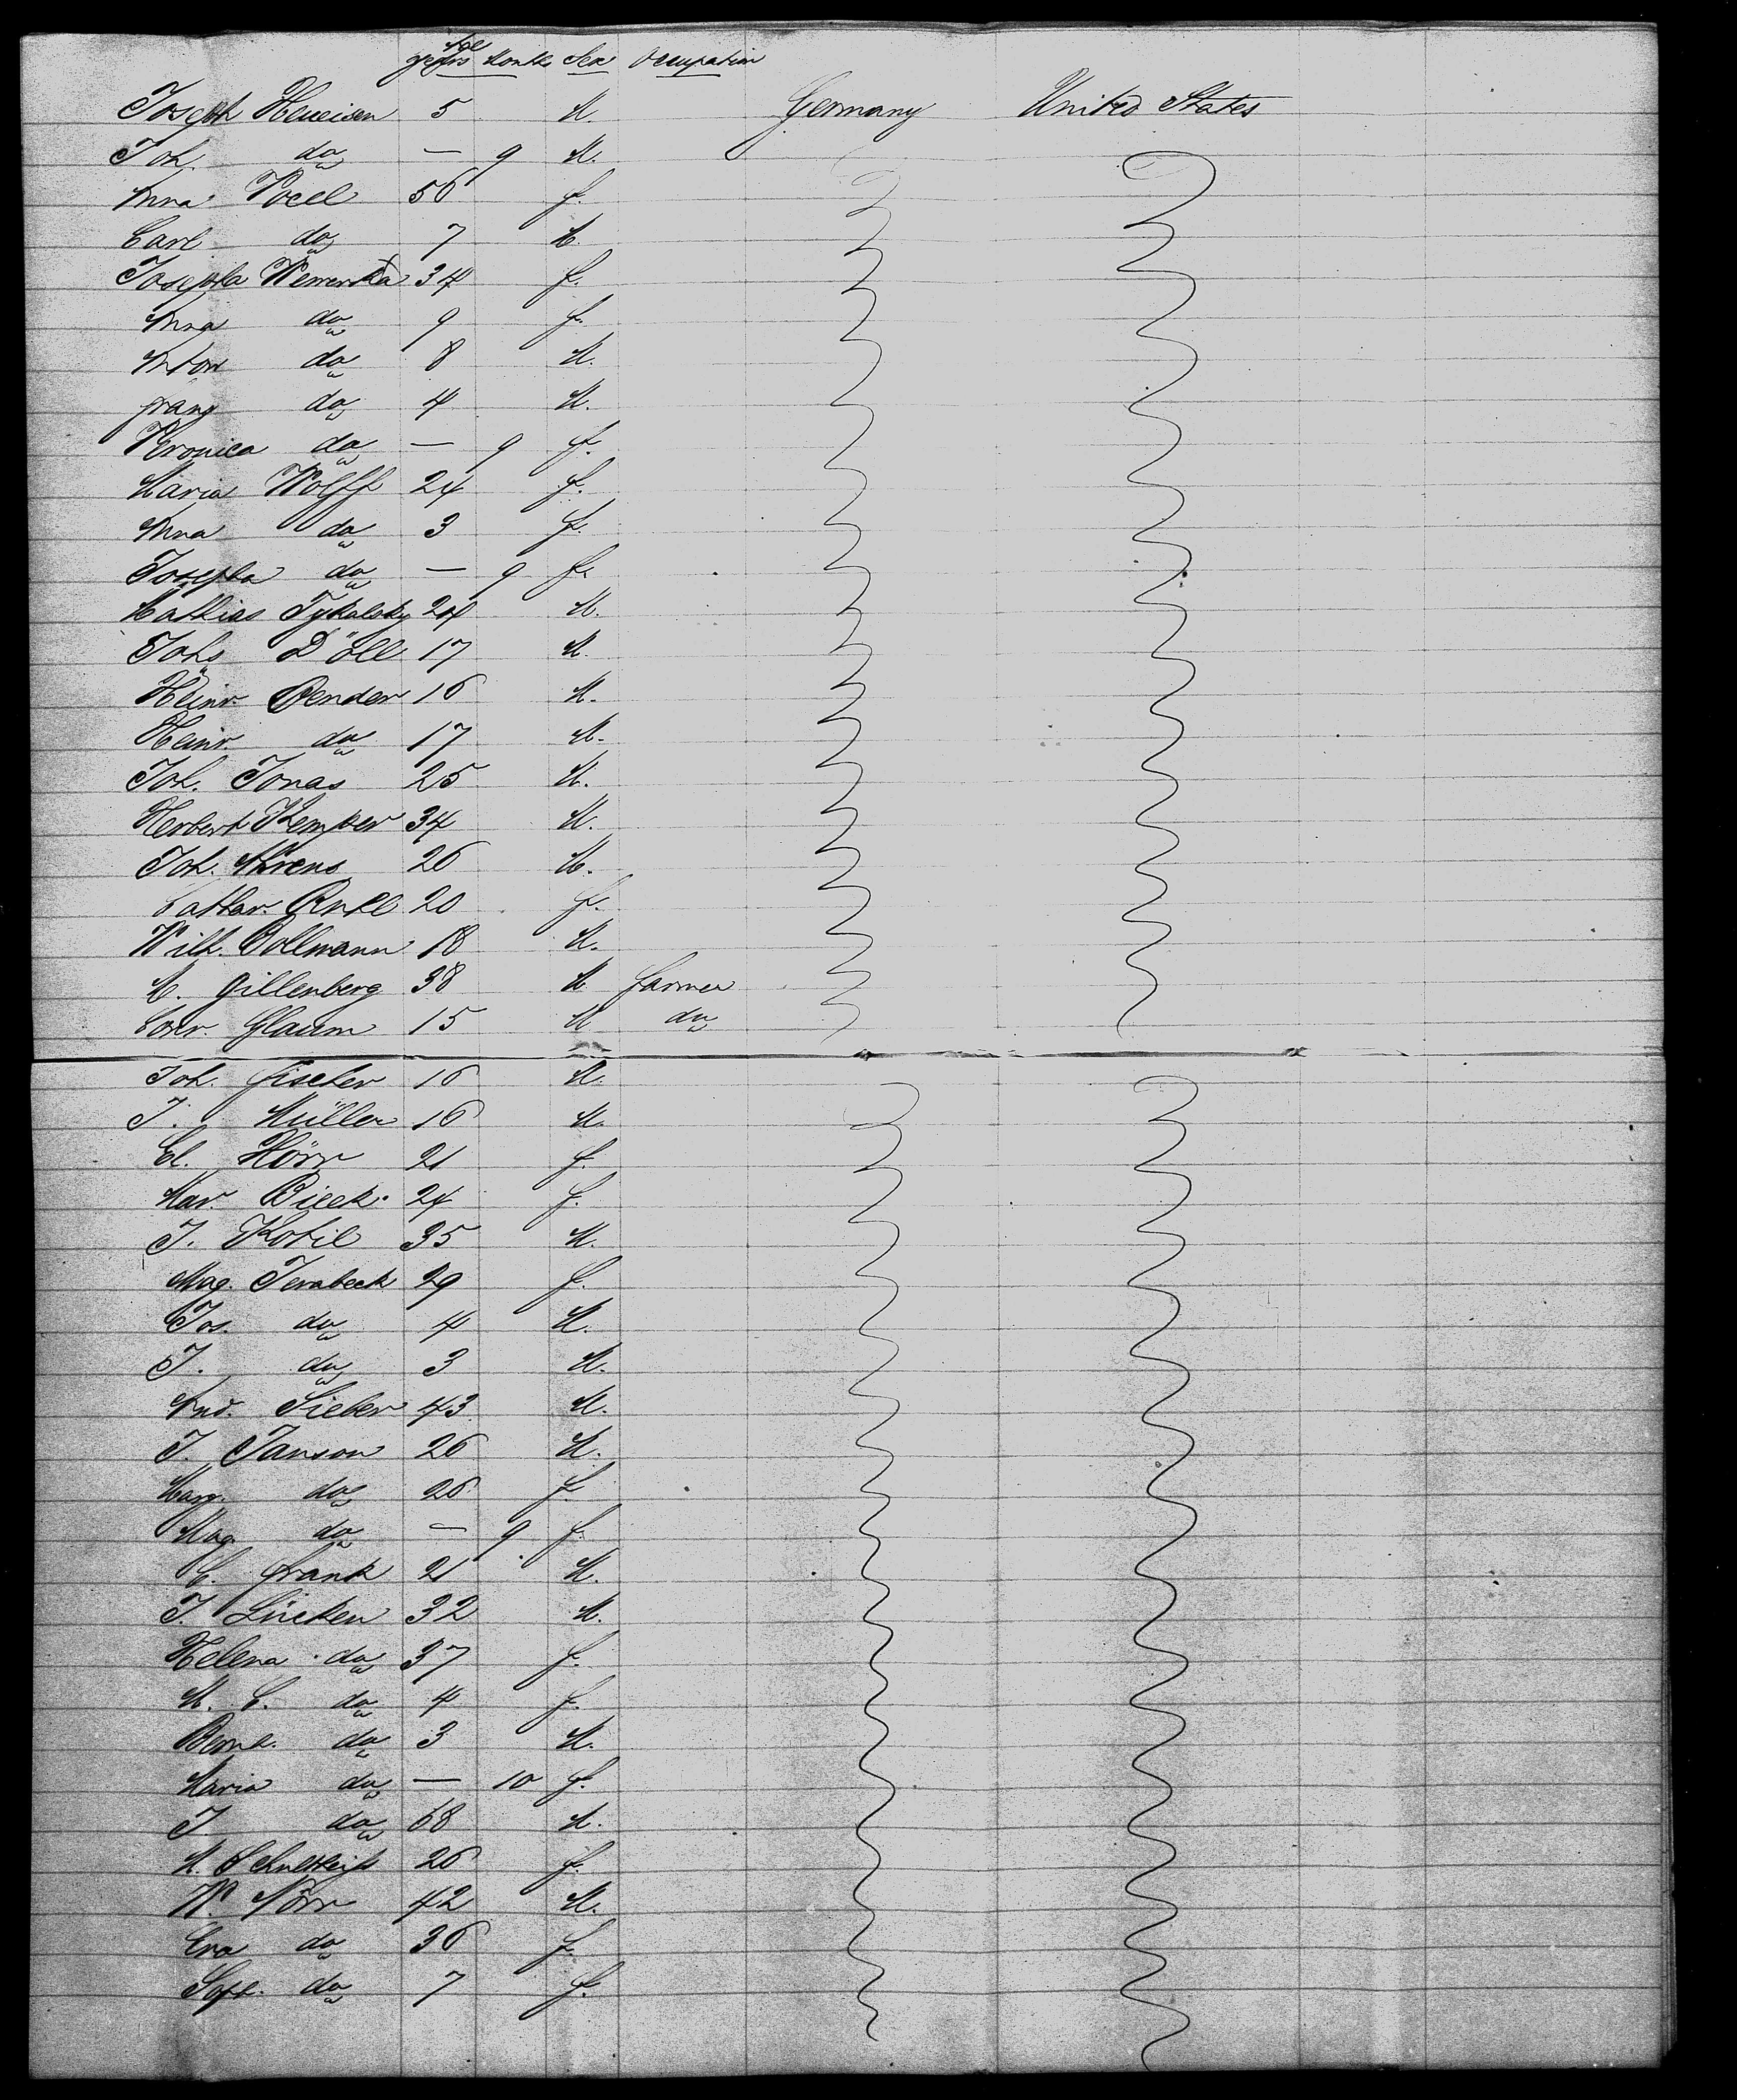 Age
years Months Sex Occupation
Joseph Heueisen 5 M. Germany United States
Joh. do — 9 M.
Anna Vocel 56 f.
Carl do 7 M.
Josepha Wewerka 34 f.
Anna do 9 f.
Anton do 8 M.
franz do 4 M.
Veronica do — 9 f.
Maria Wolff 24 f.
Anna do 3 f.
Josepha do — 9 f.
Mathias Tykalsky 24 M.
Johs Döll 17 M.
Heinr. Bender 16 M.
Heinr. do 17 M.
Joh. Jonas 25 M.
Herbert Kemper 34 M.
Joh. Ahrens 26 M.
Cathar. 20 f.
Wilh. Bollmann 18 M.
M. Gillenberg 38 M farmer
Conr. Glaum 15 M do
Joh. fischer 16 M.
J. Müller 16 M.
El. Hörr 21 f.
Mar. Bicek 24 f.
J. Kotil 35 M.
Mag. Jerabeck 29 f.
Jos. do 4 M.
J. do 3 M.
And. Sieber 43 M.
J. Janson 26 M.
Marg. do 26 f.
Mag do — 9 f.
C. frank 21 M.
J. Lücken 32 M.
Helena do 37 f.
M. C. do 4 f.
Bernh. do 3 M.
Maria do — 10 f.
J. do 68 M.
M. Schultheiß 26 f.
W. Nörr 42 M.
Eva do 36 f.
Soph. do 7 f.